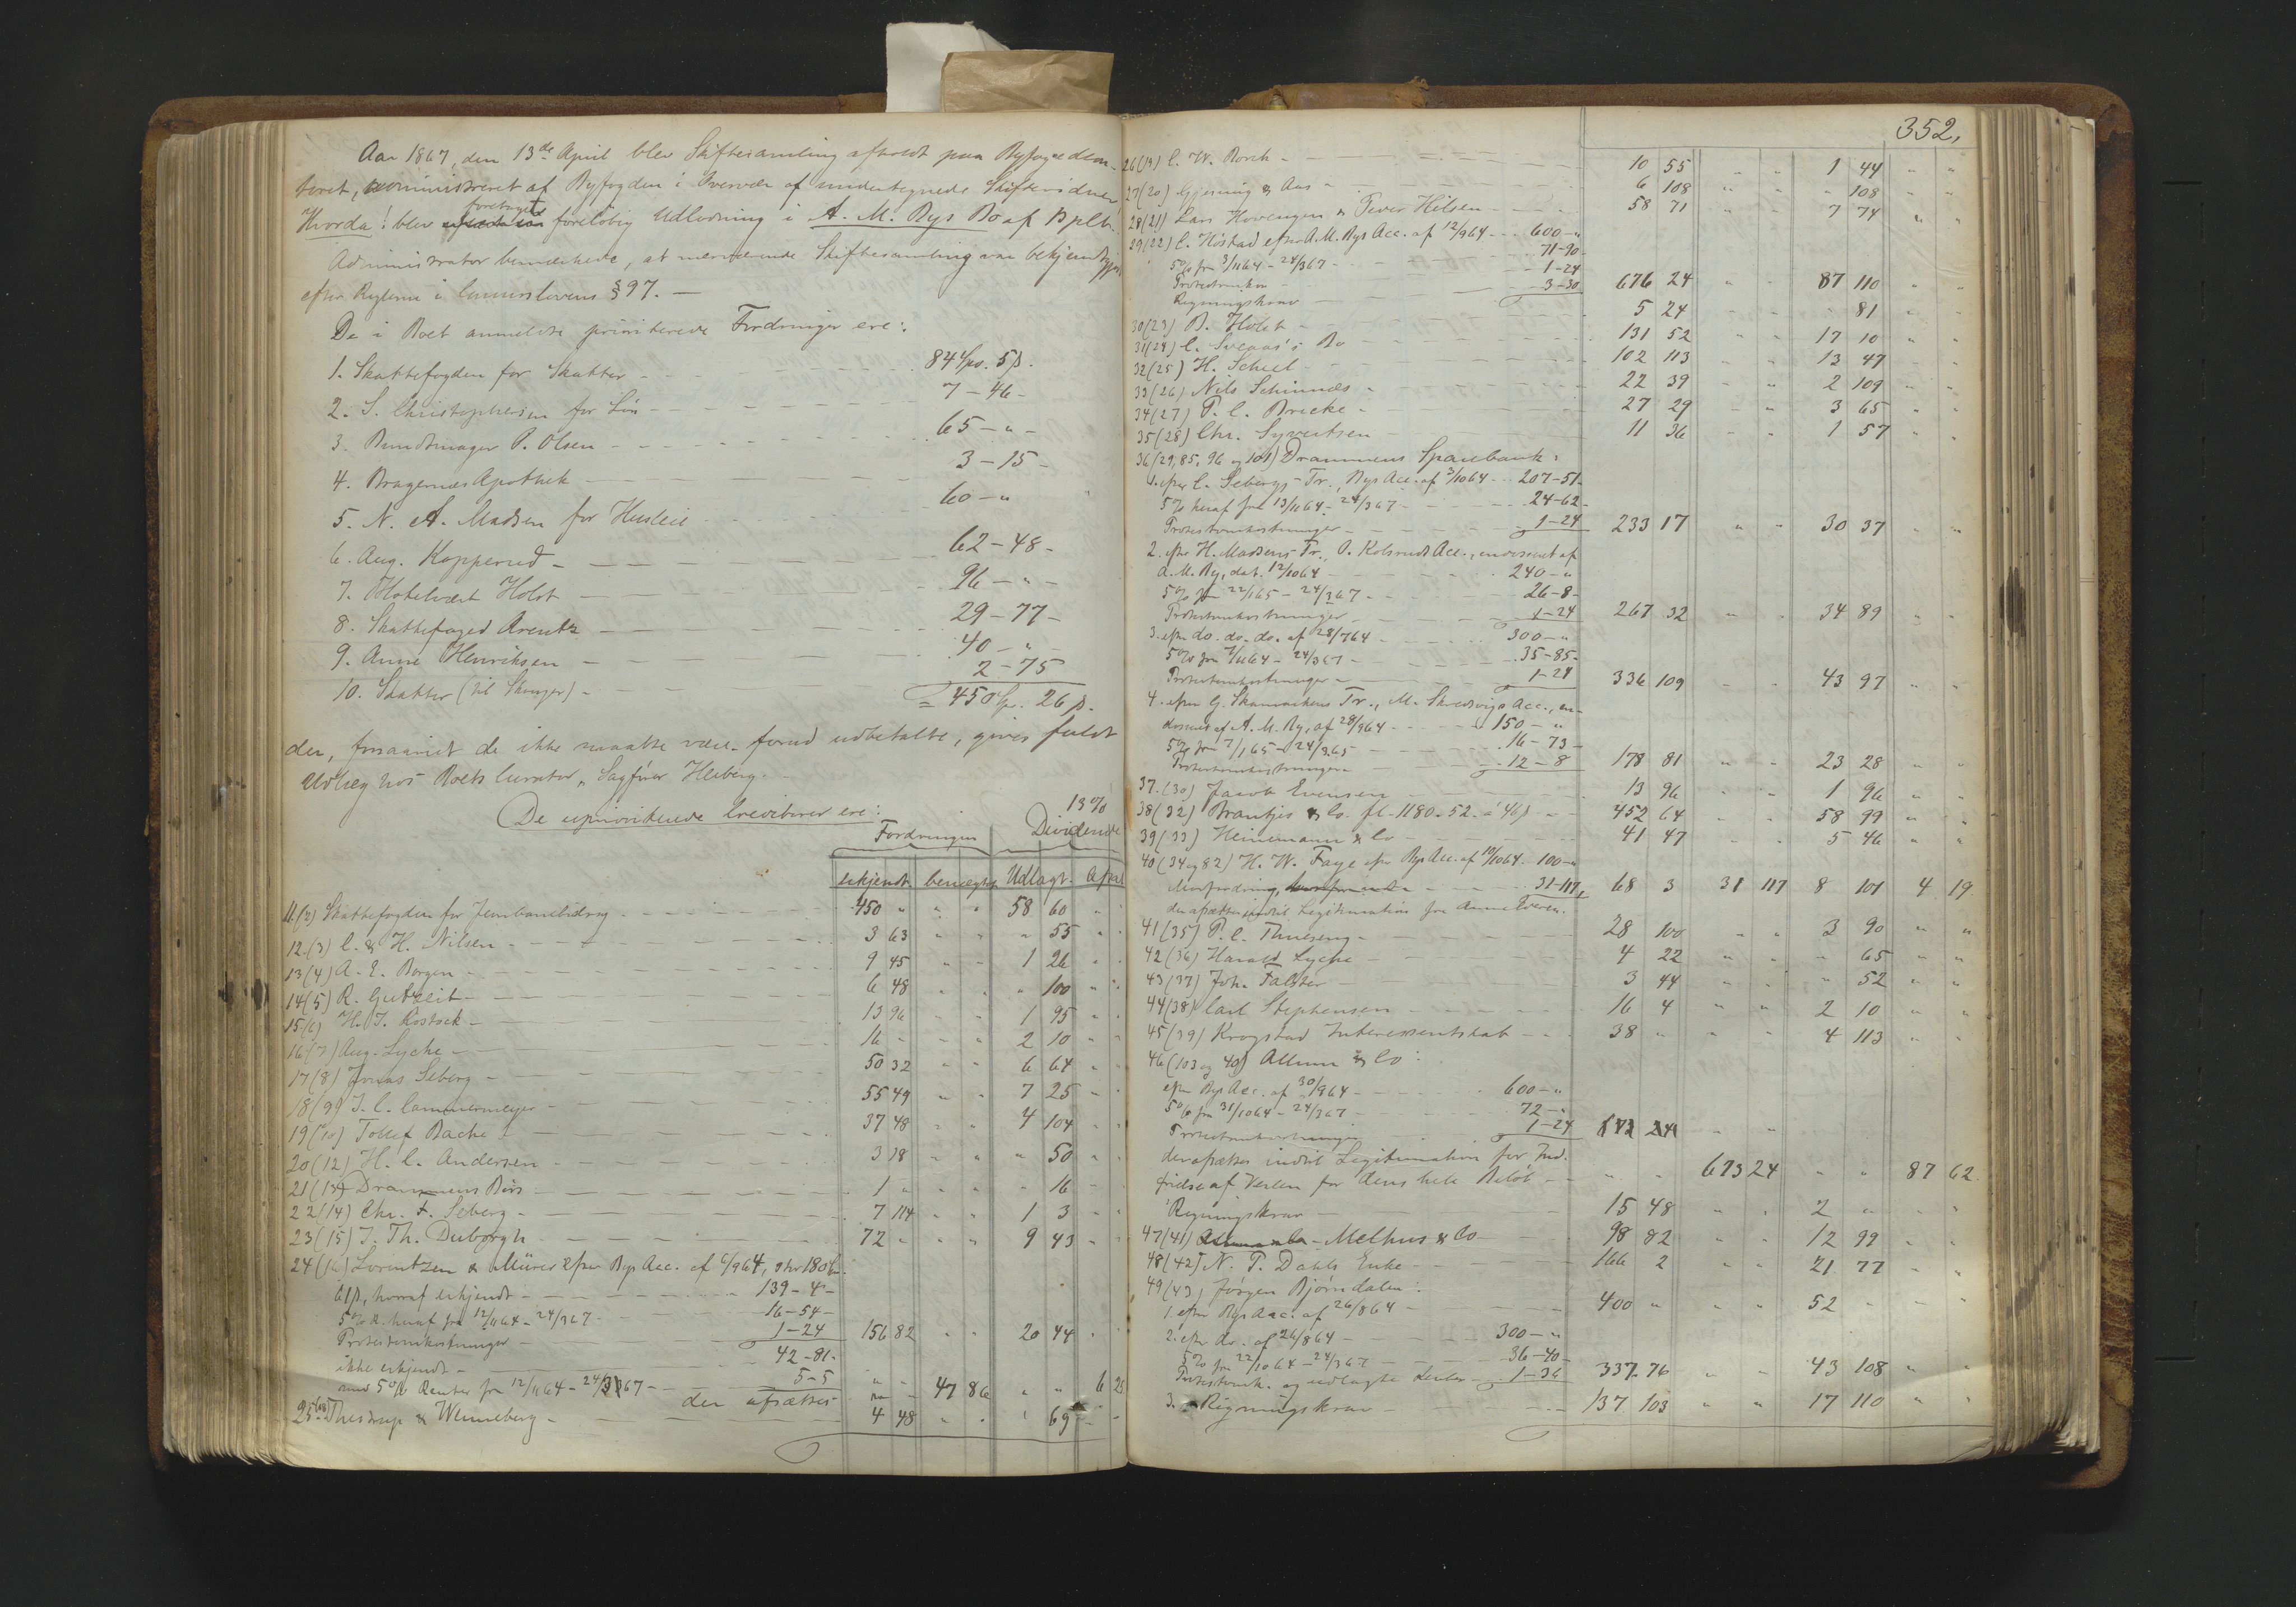 Aar 1867, den 13de April blev Skiftesamling afholdt paa Byfogedcon-
toret, administreret af Byfogden i Overvær af undertegnede Skiftevidner
Hvorda! blev foretaget foreløbig Udlodning i A. M. Bys Bo af
Administrator bemærkede, at nærværende Skiftesamling var bekjendtgjort
efter Reglerne i Concurslovens § 97. —
De i Boet anmeldte prioriterede Fordringer ere:
1. Skattefogden for Skatter - 84 Spd. 5 β.
2. S. Christophersen for Løn - 7 - 46 -
3. Bundtmager P. Olsen - 65 - " -
4. Bragernæs Apothek - 3 - 15 -
5. N. A. Madsen for Husleie 60 - "
6. Aug. Kopperud - 62 - 48 -
7. Hotelvært Holst - 96 - " -
8. Skattefoged Arentz - 29 - 77 -
9. Anne Henriksen - 40 - " -
10. Skatter (til Skoger) - 2 - 75
= 450 Sp. 26 β.
der, forsaavidt de ikke maatte være forud udbetalte, gives fuldt
Udlæg hos Boets Curator, Sagfører Heiberg.
De uprioriterede Creditorer ere:
13%
Fordringen Dividende
erkjendt benægtet Udlagt. Afsat
11.(2) Skattefogden for Jernbanebidrag - 450 " " " 58 60 " "
12.(3) C. & H. Nilsen - 3 63 " " " 55 " "
13(4) A. E. Borgen - 9 45 " " 1 26 " "
14(5) R. Gutzeit - 6 48 " " " 100 " "
15(6) H. J. Rostock - 13 96 " " 1 95 " "
16(7) Aug. Lyche - 16 " " " 2 10 " "
17(8) Jonas Seberg - 50 32 " " 6 64 " "
18(9) J. C. Cammermeyer - 55 49 " " 7 25 " "
19(10) Tollef Bache - 37 48 " " 4 104 " "
20(12) H. C. Andersen - 3 18 " " " 50 " "
21(13) Drammens Børs - 1 " " " " 16 " "
22(14) Chr. F. Seberg - 7 114 " " 1 3 " "
23(15) J. Th. Duborgh - 72 " " " 9 43 " "
24(16) Lorentzen & Mürer efter Bys Acc. af 6/9 64, stor 180 Sp.
61 β, hvoraf erkjendt - 139 - 4 -
5% R. heraf fra 12/11 64 - 24/3 67 - 16 - 54 -
Protestomkostninger - 1 - 24 156 82 " " 20 44 " "
ikke erkjendt - 42 - 81 -
med 5% Renter fra 12/11 64 - 24/3 67 - 5 - 5
der afsættes " " 47 86 " " 6 25
25(18) Thestrup & Wenneberg - 4 48 " " " 69 " "
352,
26(19) C. W. Borch - 10 55 " " 1 44 " "
27(20) Gjessing & Aas - 6 108 " " " 108 " "
28(21) Lars Hovengen & Peder Hilsen - 58 71 " " 7 74 " "
29(22) C. Høstad efter A. M. Bys Acc. af 12/9 64 - 600 - "
5% fra 3/11 64 - 24/3 67 - 71 - 90 -
Protestomkn - 1 - 24
Regningskrav - 3 - 30 676 24 " " 87 110 " "
30(23) B. Holst - 5 24 " " " 81 " "
31(24) C. Sveaas's Bo - 131 52 " " 17 10 " "
32(25) H. Scheel - 102 113 " " 13 47 " "
33(26) Nils Schinnæs - 22 39 " " 2 109 " "
34(27) P. C. Brecke - 27 29 " " 3 65 " "
35(28) Chr. Syvertsen - 11 36 " " 1 57 " "
36(29, 85, 96 og 101) Drammens Sparebank:
1. efter C. Sebergs Tr., Bys Acc. af 3/10 64 - 207 - 51 -
5% heraf fra 13/11 64 - 24/3 67 - 24 - 62 -
Protestomkostninger - 1 - 24 233 17 " " 30 37 " "
2. efter H. Madsens Tr., O. Kolsruds Acc., endosseret af
A. M. By, dat. 12/10 64 - 240 - "
5% fra 22/1 65 - 24/3 67 - 26 - 8 -
Protestomkostninger - 1 - 24 267 32 " " 34 89 " "
3. efter do. do. do. af 28/7 64 - 300 - "
5% fra 7/11 64 - 24/3 67 - 35 - 85 -
Protestomkostninger - 1 - 24 336 109 " " 43 97 " "
4. efter G. Tr., M. Skredsvigs Acc., en-
dosseret af A. M. By, af 28/9 64 - 150 - "
5% fra 7/1 65 - 24/3 65 - 16 - 73 -
Protestomkostninger - 12 - 8 178 81 " " 23 28 " "
37.(30) Jacob Evensen - 13 96 " " 1 96 " "
38(32) Brantjes & Co. fl. 1180. 52. a 46) - 452 64 " " 58 99 " "
39(33) Heinemann & Co - 41 47 " " 5 46 " "
40(34 og 82) H. W. Faye efter Bys Acc. af 10/10 64 - 100 - "
Modfordring - 31 - 117, 68 3 31 117 8 101 4 19
der afsættes indtil Legitimation fra Anne Iversen.
41(35) P. C. Thueseng - 28 100 " " 3 90 " "
42(36) Harald Lyche - 4 22 " " " 65 " "
43(37) Joh. Falster - 3 44 " " " 52 " "
44(38) Carl Stephensen - 16 4 " " 2 10 " "
45(39) Krogstad Interessentskab - 38 " " " 4 113 " "
46(103 og 40) Allum & Co:
efter Bys Acc. af 30/9 64 - 600 - "
5% fra 31/10 64 - 24/3 67 - 72 - "
Protestomkostninger - 1 - 24 673 24 " "
der afsættes indtil Legitimation for Ind-
frielse af Vexlen for dens hele Beløb - " " 673 24 " " 87 62
Regningskrav - 15 48 " " 2 " " "
47(41) Melhus & Co - 98 82 " " 12 99 " "
48(42) N. P. Dahls Enke - 166 2 " " 21 77 " "
49(43) Jørgen Bjørndalen:
1. efter Bys Acc. af 26/8 64 - 400 " " " 52 " " "
2. efter do. af 26/8 64 - 300 - "
5% fra 22/10 64 - 24/3 67 - 36 - 40 -
Protestomk. og udlagte - 1 - 36 337 76 " " 43 108 " "
3. Regningskrav - 137 103 " " 17 110 " "